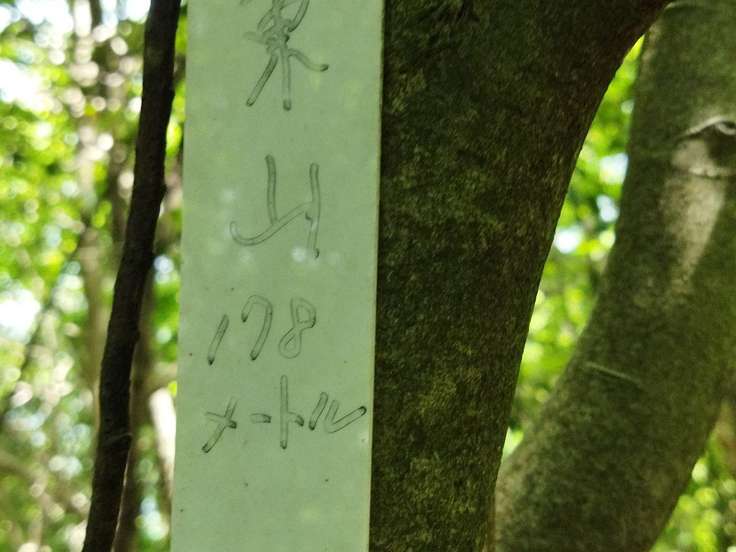 東
山
178
メートル